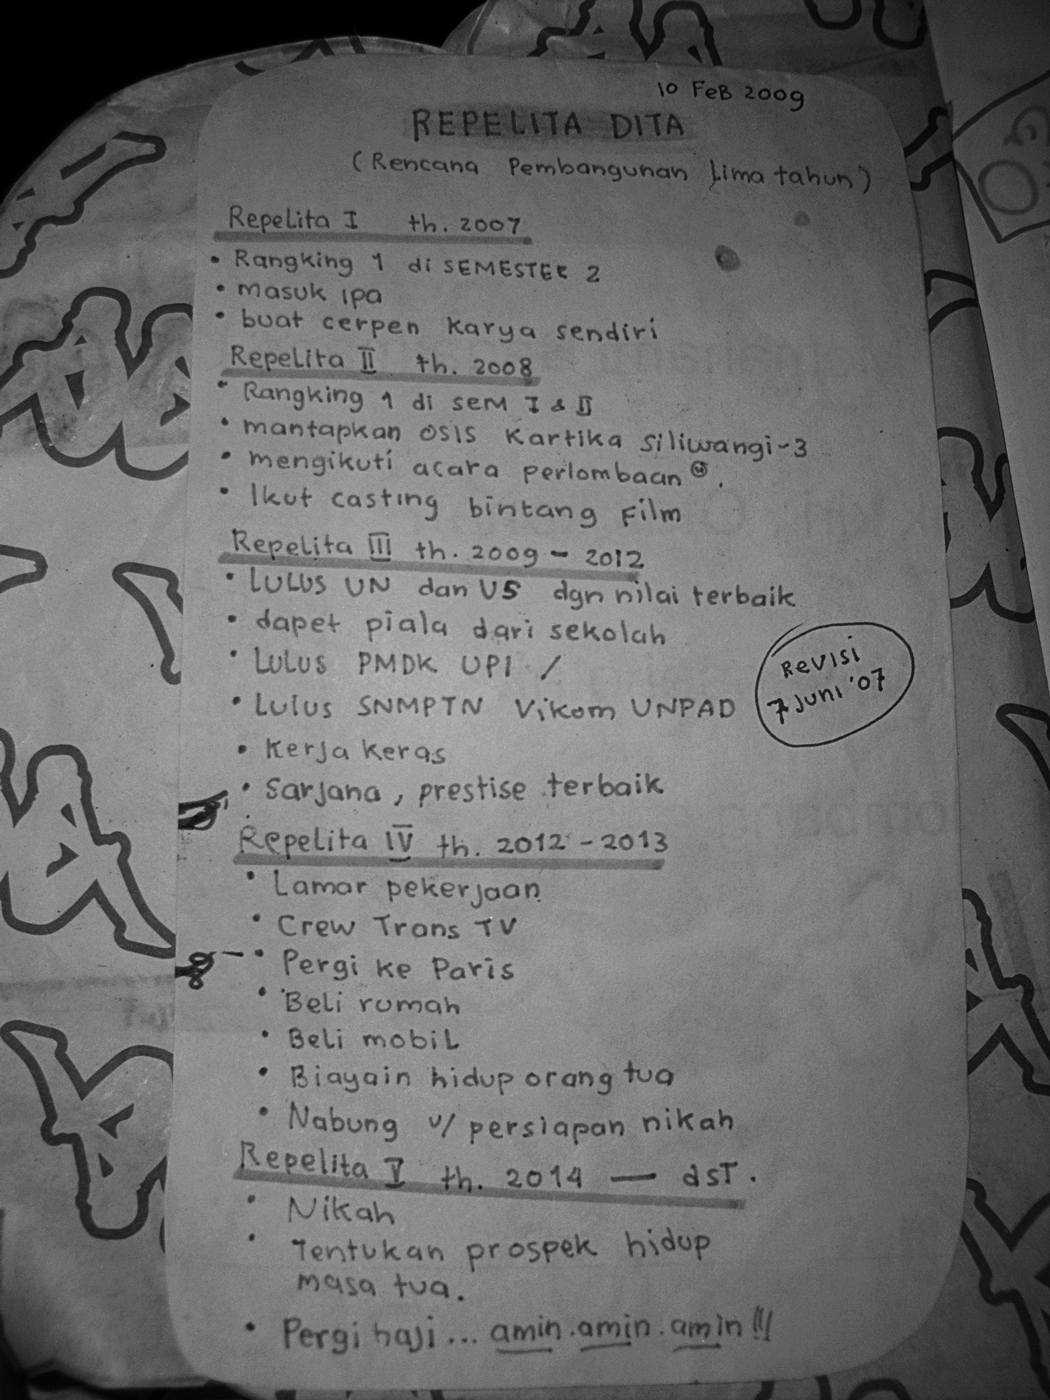 10 FEB 2009
REPELITA DITA
(Rencana Pembangunan Lima tahun)
Repelita I th. 2007
• Rangking 1 di SEMESTER 2
• masuk ipa
• buat cerpen karya sendiri
Repelita II th. 2008
• Rangking 1 di sem I & II
• mantapkan OSIS Kartika Siliwangi-3
• mengikuti acara perlombaan ☺.
• Ikut casting bintang Film
Repelita III th. 2009 - 2012
• LULUS UN dan US dgn nilai terbaik
• dapet piala dari sekolah
• Lulus PMDK UPI /
• Lulus SNMPTN Vikom UNPAD
REVISI
7 Juni '07
• Kerja keras
• Sarjana, prestise terbaik
Repelita IV th. 2012 - 2013
• Lamar pekerjaan
• Crew Trans TV
• Pergi ke Paris
• Beli rumah
• Beli mobil
• Biayain hidup orang tua
• Nabung u/ persiapan nikah
Repelita V th. 2014 — dst.
• Nikah
• Tentukan prospek hidup
masa tua.
• Pergi haji... amin.amin.amin!!!